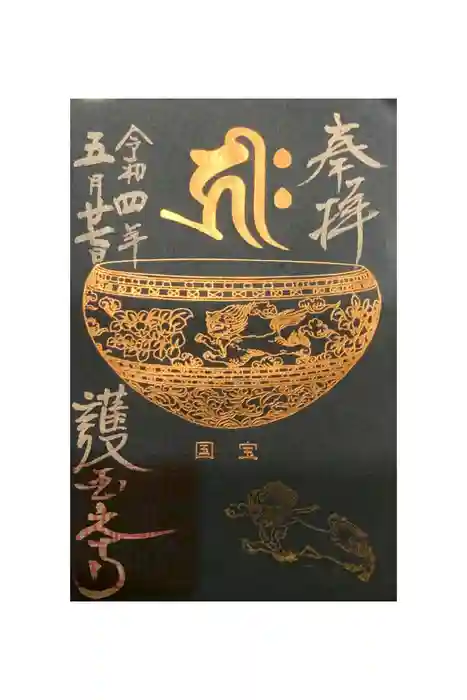 奉拝
𑖮𑖿𑖨𑖱𑖾
令和四年
五月廿七日
国宝
護国之寺